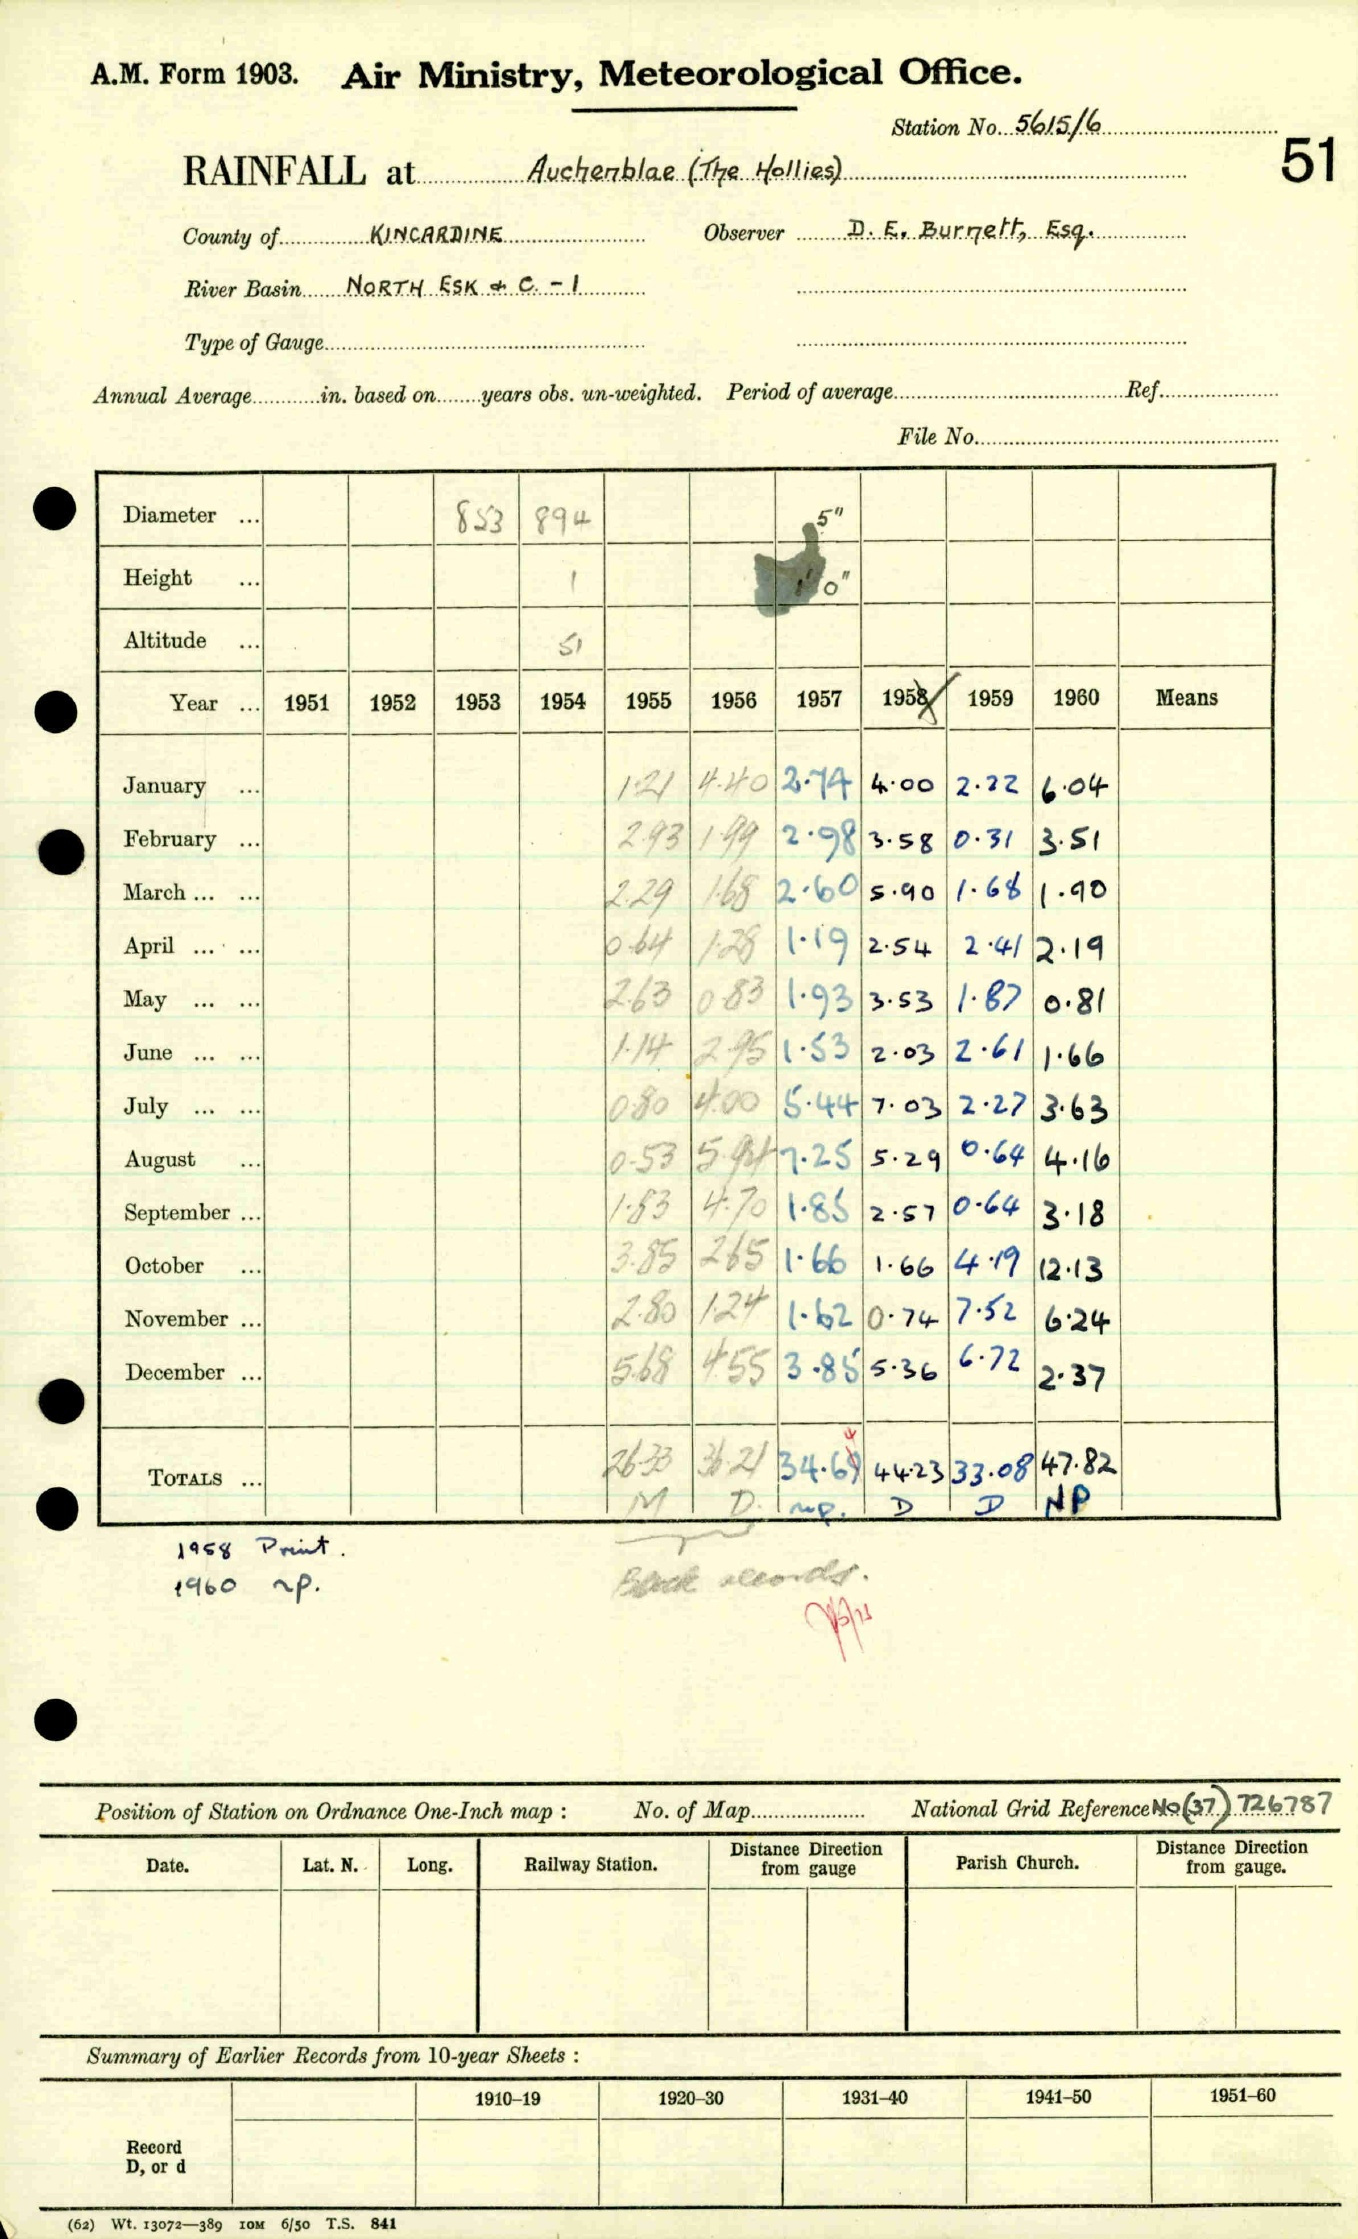 A.M. Form 1903. Air Ministry, Meteorological Office.
Station No. 5615/6
51
RAINFALL at Auchenblae (The Hollies)
County of KINCARDINE Observer D. E. Burnett, Esq.
River Basin NORTH ESK & C. - 1
Type of Gauge
Annual Average in. based on years obs. un-weighted. Period of average Ref.
File No.
Diameter ... 853 894 5"
Height ... 1 1' 0"
Altitude ... 51
Year ... 1951 1952 1953 1954 1955 1956 1957 1958 1959 1960 Means
January ... 1.21 4.40 2.74 4.00 2.22 6.04
February ... 2.93 1.99 2.98 3.58 0.31 3.51
March ... ... 2.29 1.68 2.60 5.90 1.68 1.90
April ... ... 0.64 1.28 1.19 2.54 2.41 2.19
May ... ... 2.63 0.83 1.93 3.53 1.87 0.81
June ... ... 1.14 2.95 1.53 2.03 2.61 1.66
July ... ... 0.80 4.00 5.44 7.03 2.27 3.63
August ... 0.53 5.94 7.25 5.29 0.64 4.16
September ... 1.83 4.70 1.85 2.57 0.64 3.18
October ... 3.85 2.65 1.66 1.66 4.19 12.13
November ... 2.80 1.24 1.62 0.74 7.52 6.24
December ... 5.68 4.55 3.85 5.36 6.72 2.37
4
TOTALS ... 26.33 36.21 34.69 44.23 33.08 47.82
M D. np. D D NP
1958 Print.
1960 np.
Back records.
Position of Station on Ordnance One-Inch map : No. of Map National Grid Reference NO (37) 726787
Date. Lat. N. Long. Railway Station. Distance from Direction gauge Parish Church. Distance from Direction gauge.
Summary of Earlier Records from 10-year Sheets :
1910–19 1920–30 1931–40 1941–50 1951–60
Record
D, or d
(62) Wt. 13072—389 10M 6/50 T.S. 841